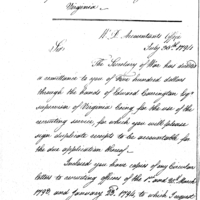 Virginia.
W. D. Accountants Office
July 20th 1794
Sir
The Secretary of War has directed
a remittance to you of Five hundred dollars
through the hands of Edward Carrington Esqr
supervisor of Virginia being for the use of the
recruiting service, for which you will please
sign duplicate receipts to be accountable for
the due application thereof.
Inclosed you have copies of my Circular
letters to recruiting officers of the 1st and 20th March
1792, and January 28. 1794, to which I request